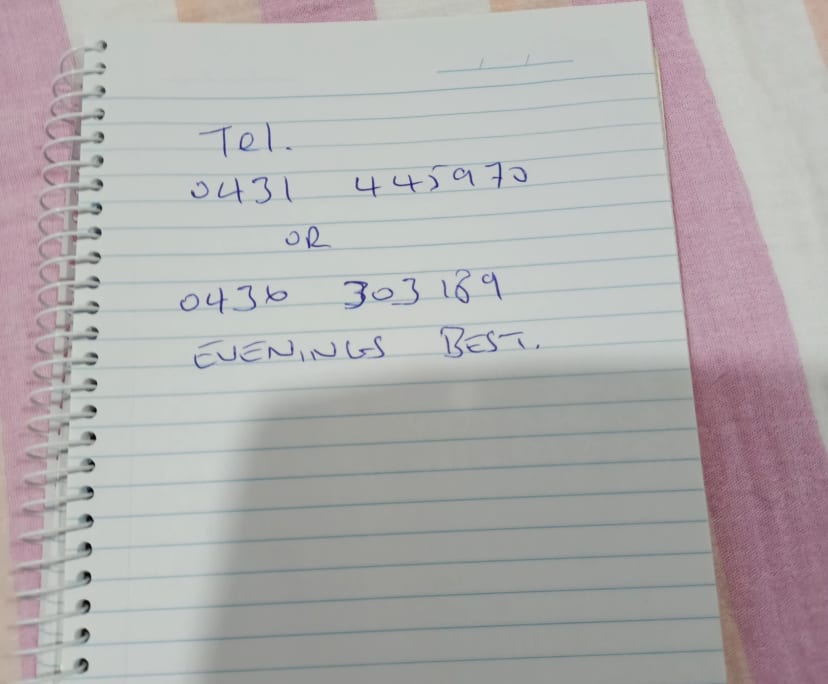 Tel.
0431 445970
OR
0436 303189
EVENINGS BEST.